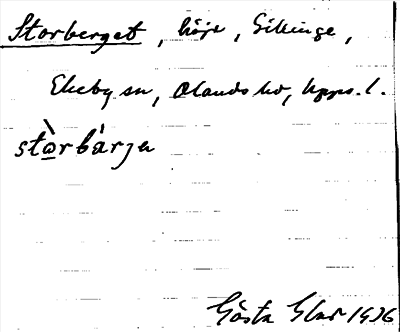 Storberget, höjd, Gillinge,
Ekeby sn, Olands hd, Upps. l.
stòrbárja
Gösta 1936